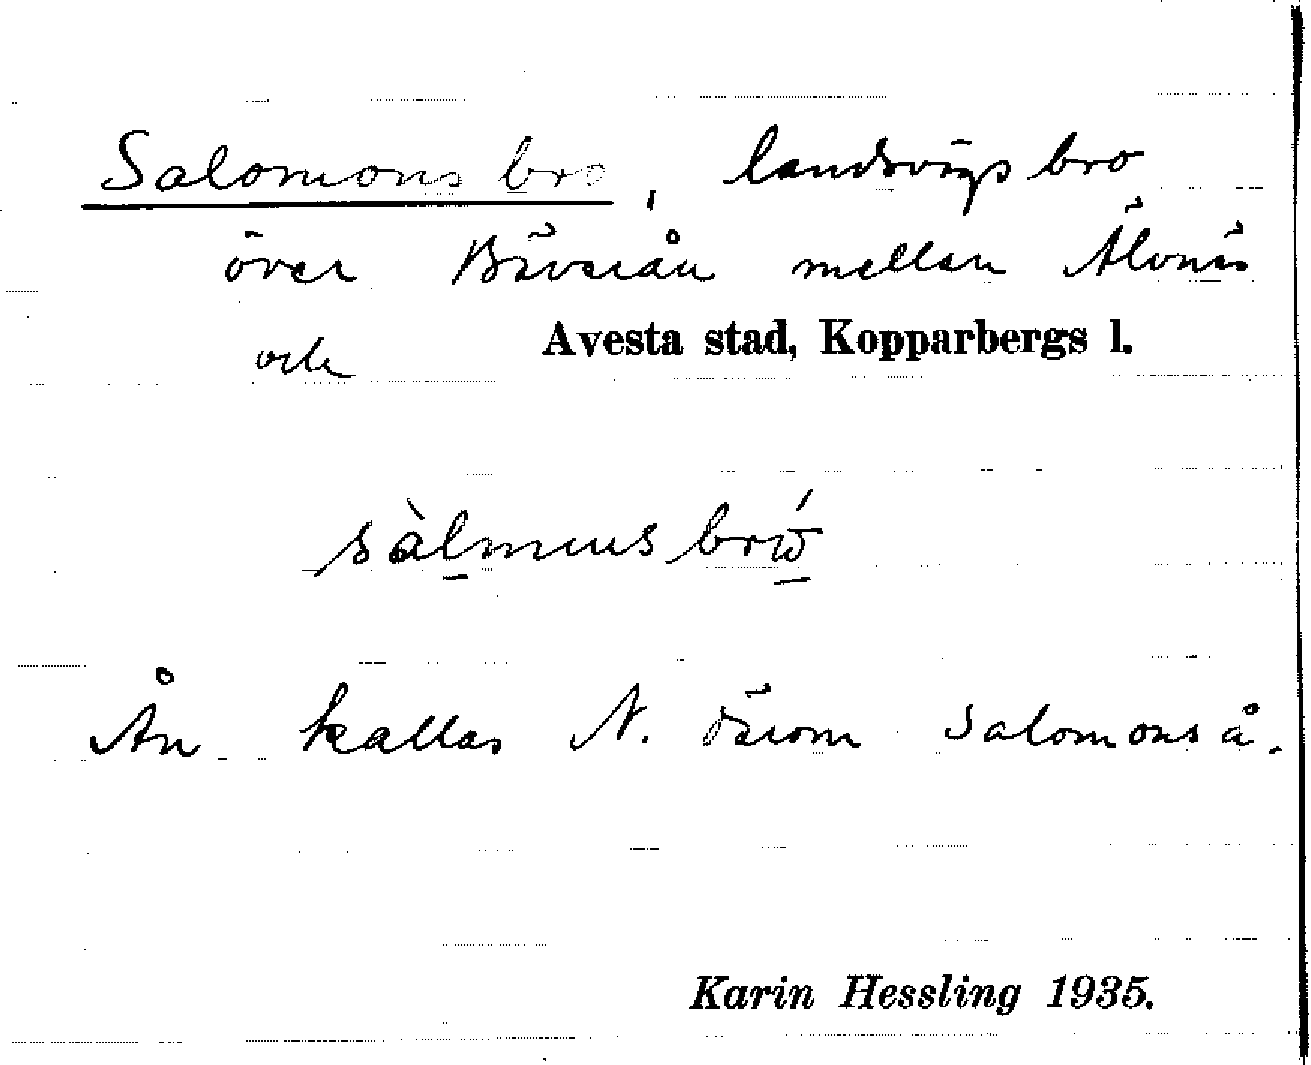 Salomons bro, landsvägsbro
över Bäsiån mellan Älvnäs
och Avesta stad, Kopparbergs l.
sàlmuns brώ
Ån kallas N. därom Salomonså.
Karin Hessling 1935.